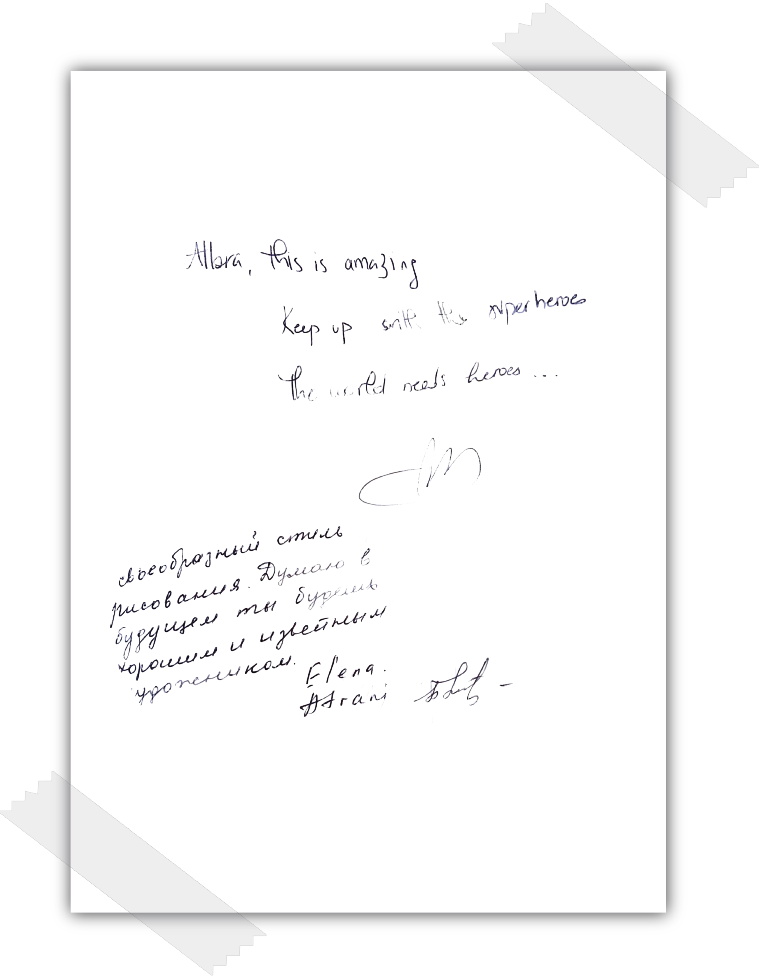 Albra, this is amazing
Keep up with the superheroes
The world needs heroes ...
своеобразный стиль
рисования. Думаю в
будущем ты будешь
хорошим и известным
художником.
Elena.
Atrani